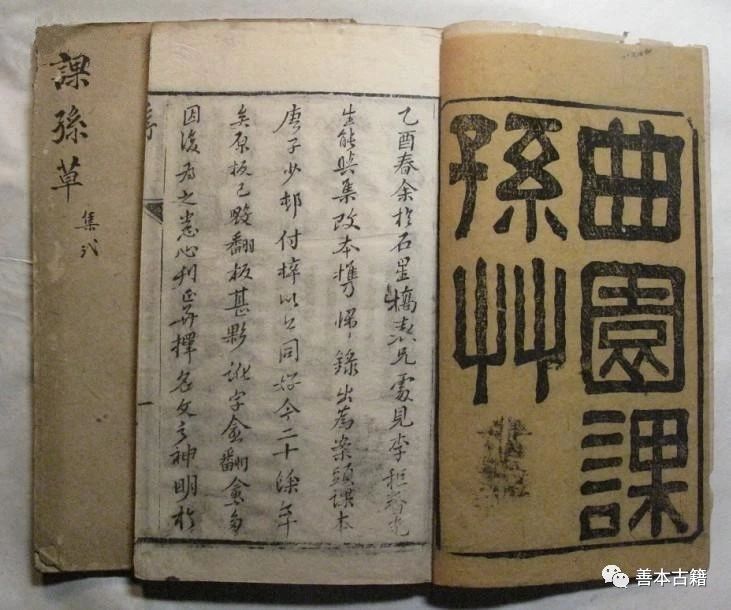 曲園課
孫艸
乙酉春余於石星橋表兄處見李秬香先
生能與集改本携歸錄出為案頭課本
庚子少邨付梓以公同好今二十餘年
矣原板已毀翻板甚夥訛字愈翻愈多
因復為之悉心刊正并擇名文之神明於
課孫草
集弍
善本古籍